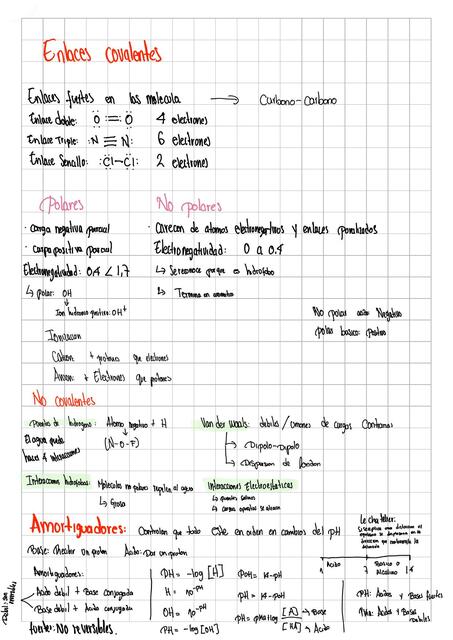 Enlaces covalentes
Enlaces fuertes en las molecula → Carbono-Carbono
Enlace doble: O = O 4 electrones
Enlace Triple: :N ≡ N: 6 electrones
Enlace Sencillo: :Cl-Cl: 2 electrones
Polares
· carga negativa parcial
· carga positiva parcial
Electronegatividad: 0.4 < 1,7
↳ polar: OH
Ion hidrogeno positivo: OH+
No polares
· Carecen de atomos electronegativos y enlaces
Electronegatividad: 0 a 0.4
↳ Se reconoce porque es hidrofobo
↳ Termina en
No polar acido Negativo
polar basico: Positivo
Ionizacion
Cation + protones que electrones
Anion: + Electrones que protones
No covalentes
Puentes de hidrogeno: Atomo negativo + H
(N-O-F)
El agua puede
hacer 4 interacciones
Van der Waals: debiles / uniones de cargas Contrarias
↳ Dipolo-Dipolo
↳ Dispersion de London
Interacciones hidrofobas: Moleculas no polares repelen al agua
↳ Grasa
Interacciones Electroestaticas
↳ puentes salinos
↳ cargas opuestas se atraen
Amortiguadores: Controlan que todo este en orden en cambios del pH
Base: Aceptar un proton Acido: Dar un proton
Le chatelier:
Acido 7 Basico o
Alcalino 14
Amortiguadores:
Acido debil + Base conjugada
Base debil + Acido conjugada
Debil: son
reversibles
fuertes: No reversibles.
PH = -log [H]
H = 10^-PH
OH = 10^-PH
PH = -log [OH]
POH = 14-PH
PH = 14-PH
PH = pka+log [A] → Base
[HA] → Acido
PH: Acidos y Bases fuertes
PKa: Acidos y Bases
debiles